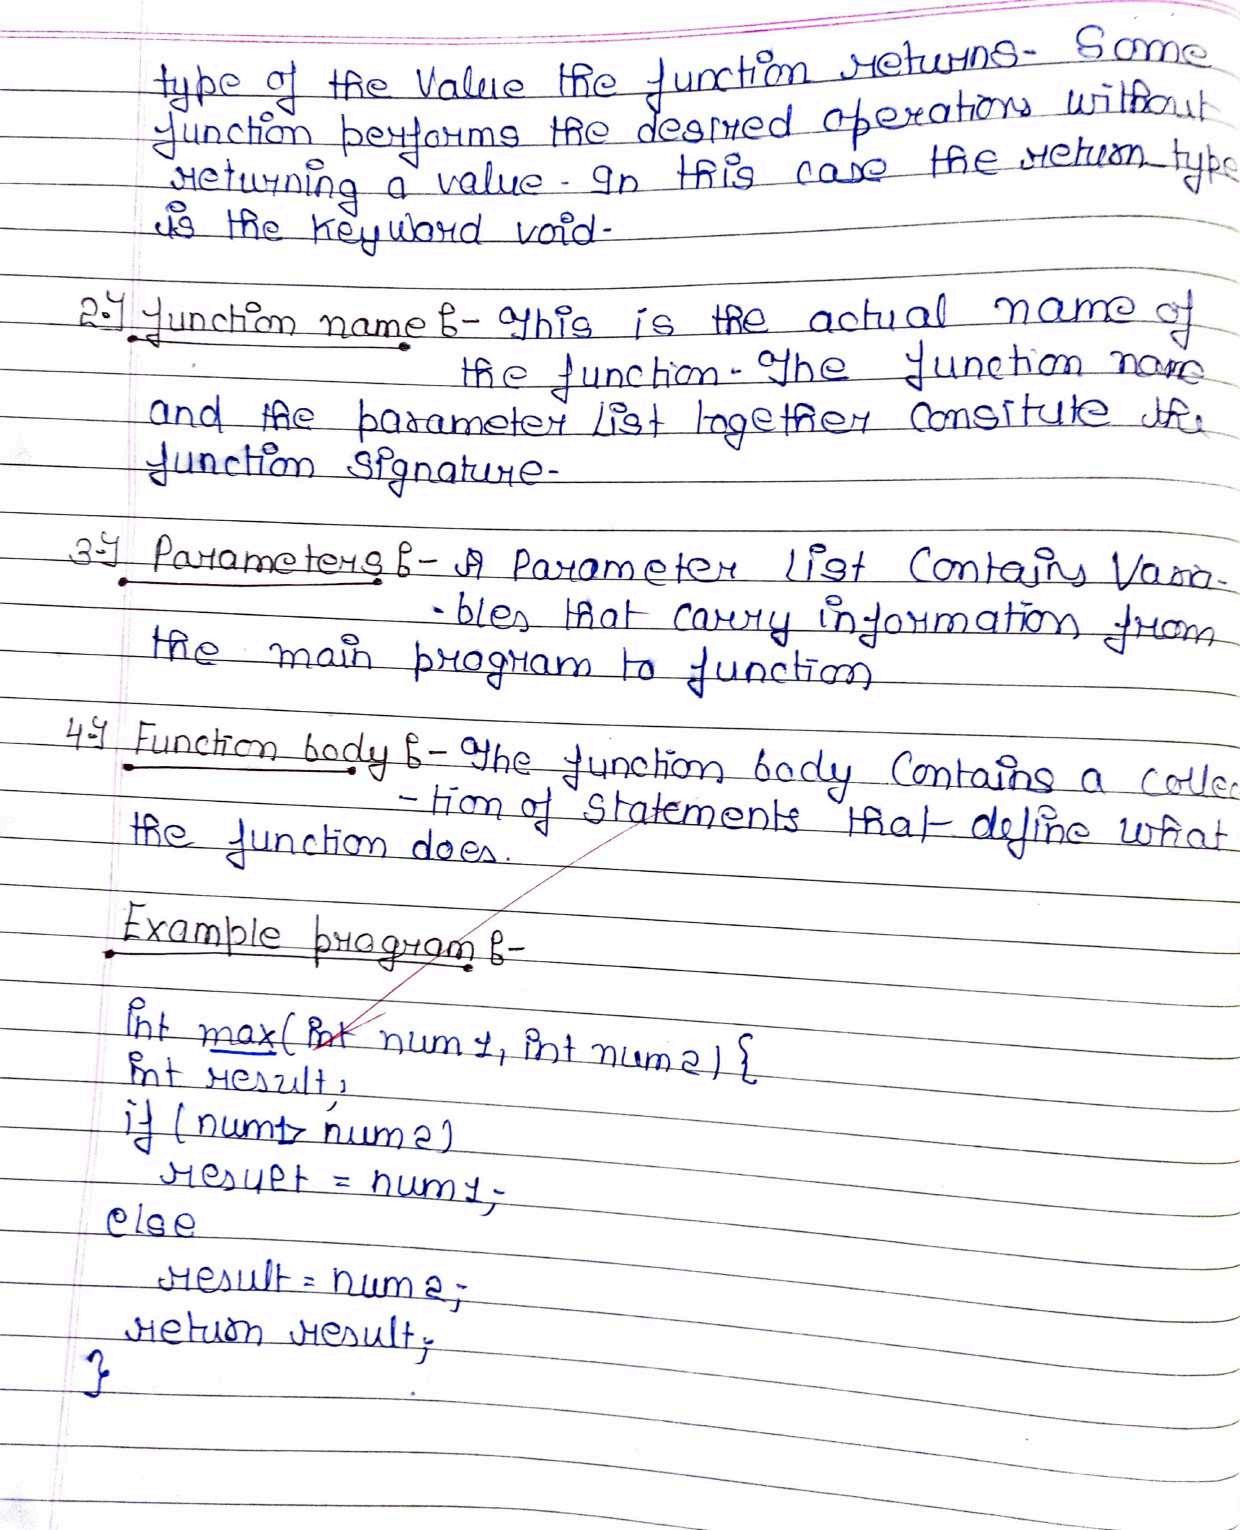 type of the Value the function returns- Some
function performs the desired operations without
returning a value. In this case the return type
is the keyword void.
2.) function name :- This is the actual name of
the function. The function name
and the parameter list together consitute the
function signature-
3-) Parameters :- A Parameter list Contains Varia-
-bles that carry information from
the main program to function
4-) Function body :- The function body Contains a collec
-tion of statements that define what
the function does.
Example program :-
int max(int num1, int num2) {
int result;
if (num1> num2)
result = num1;
else
result = num2;
return result;
}